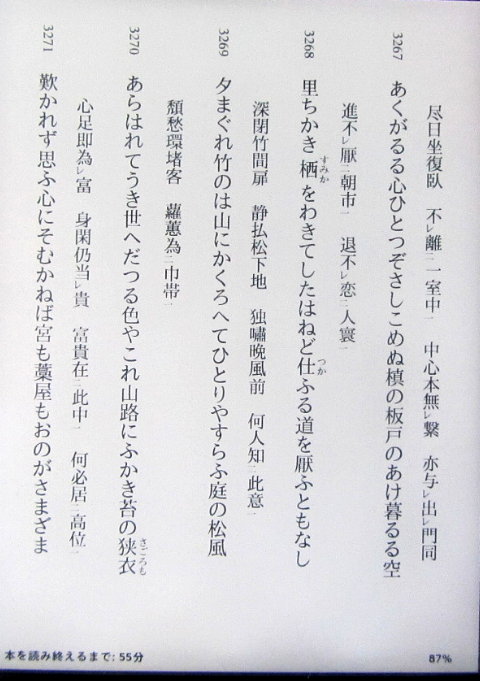 尽日坐復臥　不レ離二一室中一　中心本無レ繫　亦与レ出レ門同
3267　あくがるる心ひとつぞさしこめぬ槙の板戸のあけ暮るる空
進不レ厭二朝市一　退不レ恋二人寰一
3268　里ちかき栖すみかをわきてしたはねど仕つかふる道を厭ふともなし
深閉竹間扉　静払松下地　独嘯晩風前　何人知二此意一
3269　夕まぐれ竹のは山にかくろへてひとりやすらふ庭の松風
頽愁環堵客　蘿蕙為二巾帯一
3270　あらはれてうき世へだつる色やこれ山路にふかき苔の狭衣さごろも
心足即為レ富　身閑仍当レ貴　富貴在二此中一　何必居二高位一
3271　歎かれず思ふ心にそむかねば宮も藁屋もおのがさまざま
本を読み終えるまで: 55分
87%